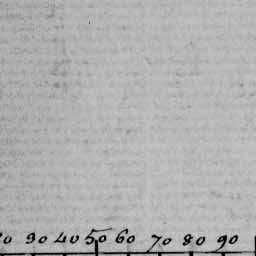 20 30 40 50 60 70 80 90